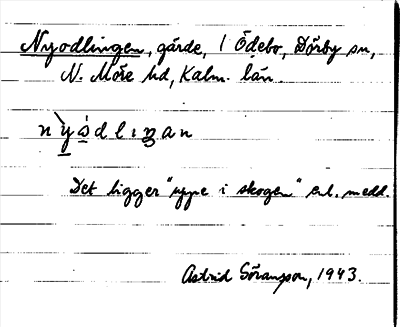 Nyodlingen, gärde, 1 Ödebo, Dörby sn,
N. Möre hd, Kalm. län.
Det ligger "uppe i skogen" enl. medd.
Astrid Göransson, 1943.